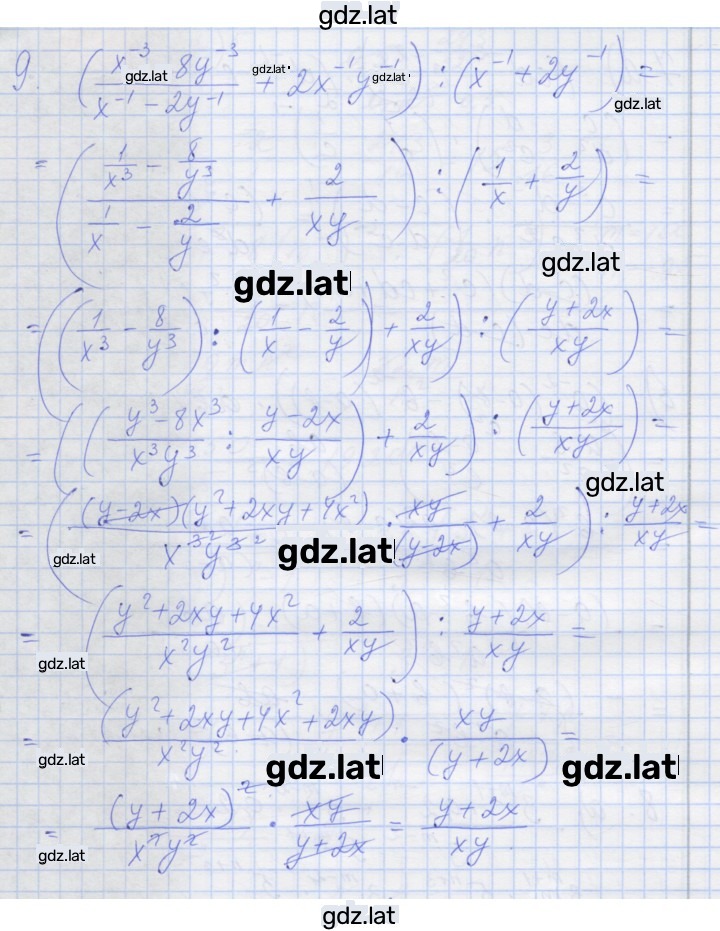 gdz.lat
9. ((x⁻³ - 8y⁻³)/(x⁻¹ - 2y⁻¹) + 2x⁻¹y⁻¹) : (x⁻¹ + 2y⁻¹) =
gdz.lat gdz.lat gdz.lat gdz.lat
= ((1/x³ - 8/y³)/(1/x - 2/y) + 2/xy) : (1/x + 2/y) =
gdz.lat gdz.lat
= (((1/x³ - 8/y³) : (1/x - 2/y)) + 2/xy) : ((y + 2x)/xy) =
= (((y³ - 8x³)/x³y³ : (y - 2x)/xy) + 2/xy) : ((y + 2x)/xy) =
gdz.lat
= ((y - 2x)(y² + 2xy + 4x²)/x³²y³² · xy/(y - 2x) + 2/xy) : (y + 2x)/xy =
gdz.lat gdz.lat
= ((y² + 2xy + 4x²)/x²y² + 2/xy) : (y + 2x)/xy =
gdz.lat
= (y² + 2xy + 4x² + 2xy)/x²y² · xy/(y + 2x) =
gdz.lat gdz.lat gdz.lat
= (y + 2x)²/x²y² · xy/(y + 2x) = (y + 2x)/xy
gdz.lat
gdz.lat